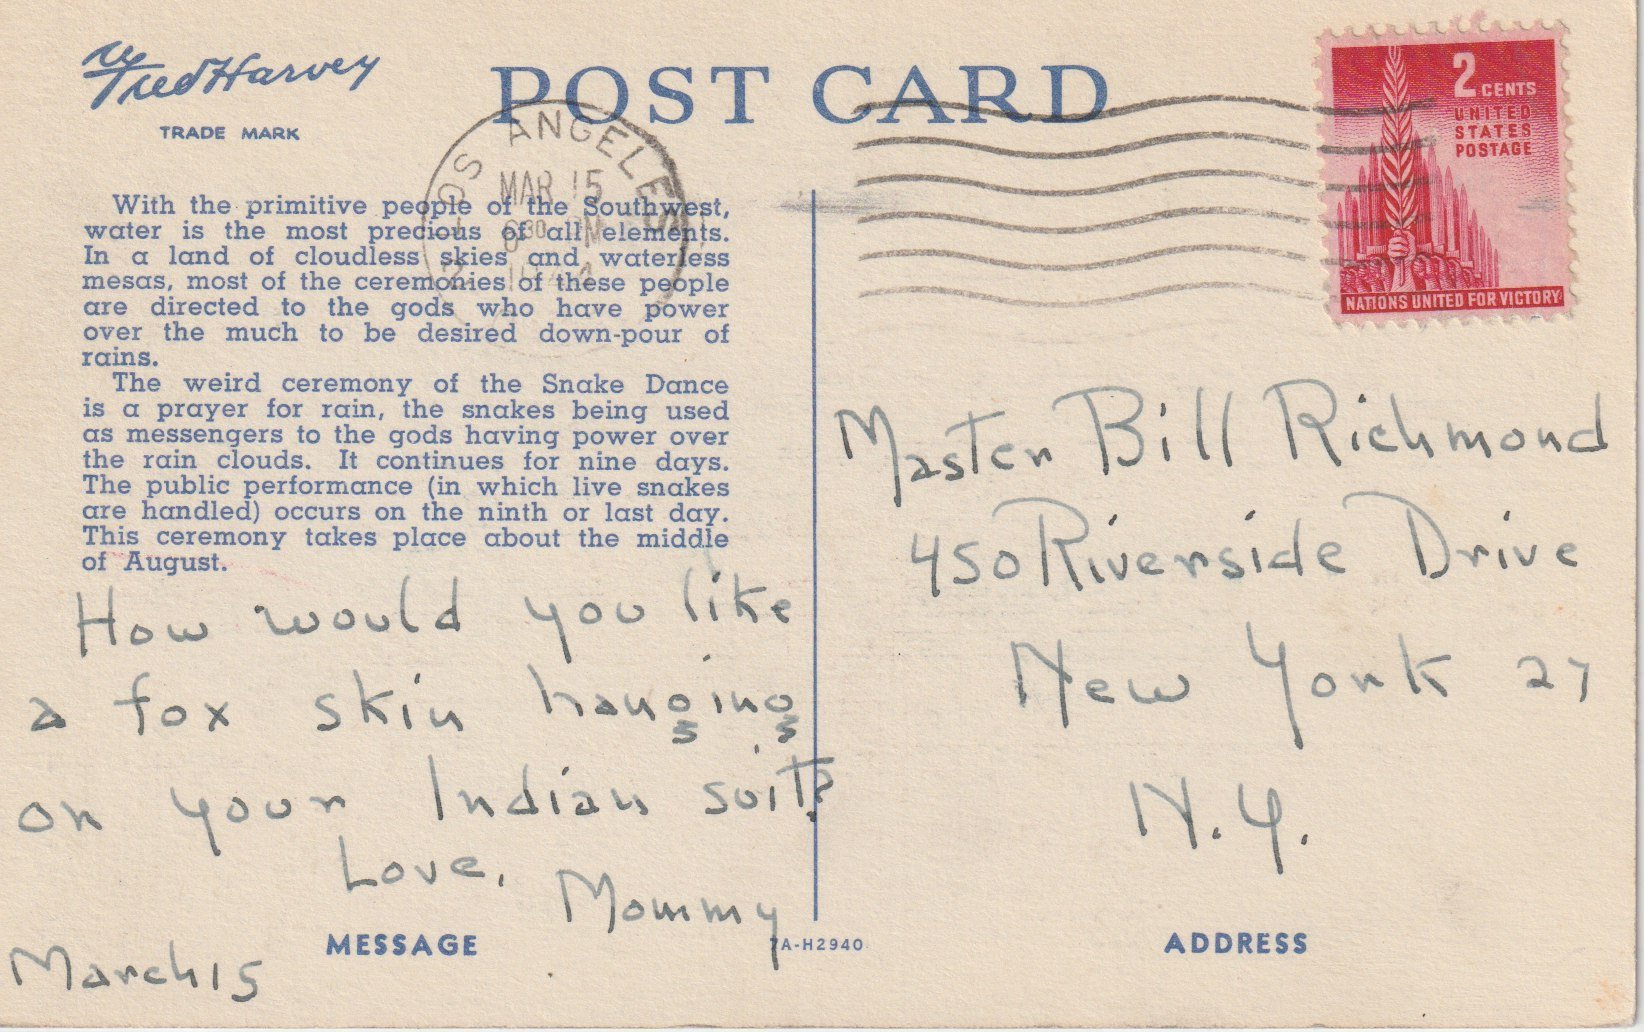 Fred Harvey
TRADE MARK
POST CARD
LOS ANGELES
MAR 15
6 30 PM
1944
2 CENTS
UNITED
STATES
POSTAGE
NATIONS UNITED FOR VICTORY
With the primitive people of the Southwest,
water is the most precious of all elements.
In a land of cloudless skies and waterless
mesas, most of the ceremonies of these people
are directed to the gods who have power
over the much to be desired down-pour of
rains.
The weird ceremony of the Snake Dance
is a prayer for rain, the snakes being used
as messengers to the gods having power over
the rain clouds. It continues for nine days.
The public performance (in which live snakes
are handled) occurs on the ninth or last day.
This ceremony takes place about the middle
of August.
How would you like
a fox skin hanging
on your Indian suit?
Love,
Mommy
March 15
MESSAGE
7A-H2940
Master Bill Richmond
450 Riverside Drive
New York 27
N.Y.
ADDRESS